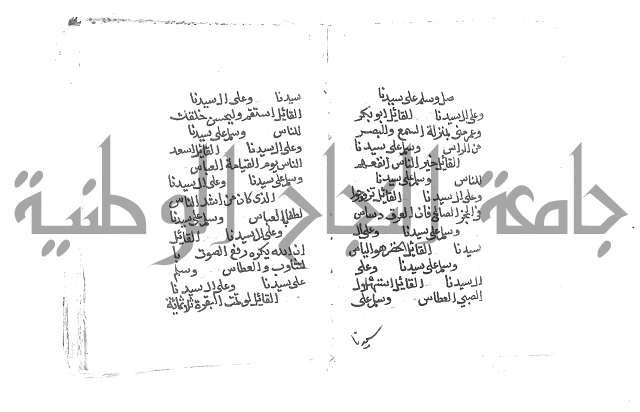 صل وسلم على سيدنا
وعلى ال سيدنا القائل ابو بكر
وعمر مني بمنزلة السمع والبصر
من الراس وسلم على سيدنا
القائل خير الناس انفعهم
للناس وسلم على سيدنا
وعلى ال سيدنا القائل تزوجوا
في الحجز الصالح فان العرق دساس
وسلم على سيدنا وعلى ال
سيدنا القائل الخضر هو الياس
وسلم على سيدنا وعلى
ال سيدنا القائل استهلال
الصبي العطاس وسلم على
سيدنا
سيدنا وعلى ال سيدنا
القائل استقم وليحسن خلقك
للناس وسلم على سيدنا
وعلى ال سيدنا القائل اسعد
الناس يوم القيامة العباس
وسلم على سيدنا وعلى ال سيدنا
الذي كان من اشد الناس
لطفا بالعباس وسلم على سيدنا
وعلى ال سيدنا القائل
ان الله يكره رفع الصوت
بالتثاوب والعطاس وسلم
على سيدنا وعلى ال سيدنا
القائل لو تمت البقرة ثلاثمائة
جامعة النجاح الوطنية